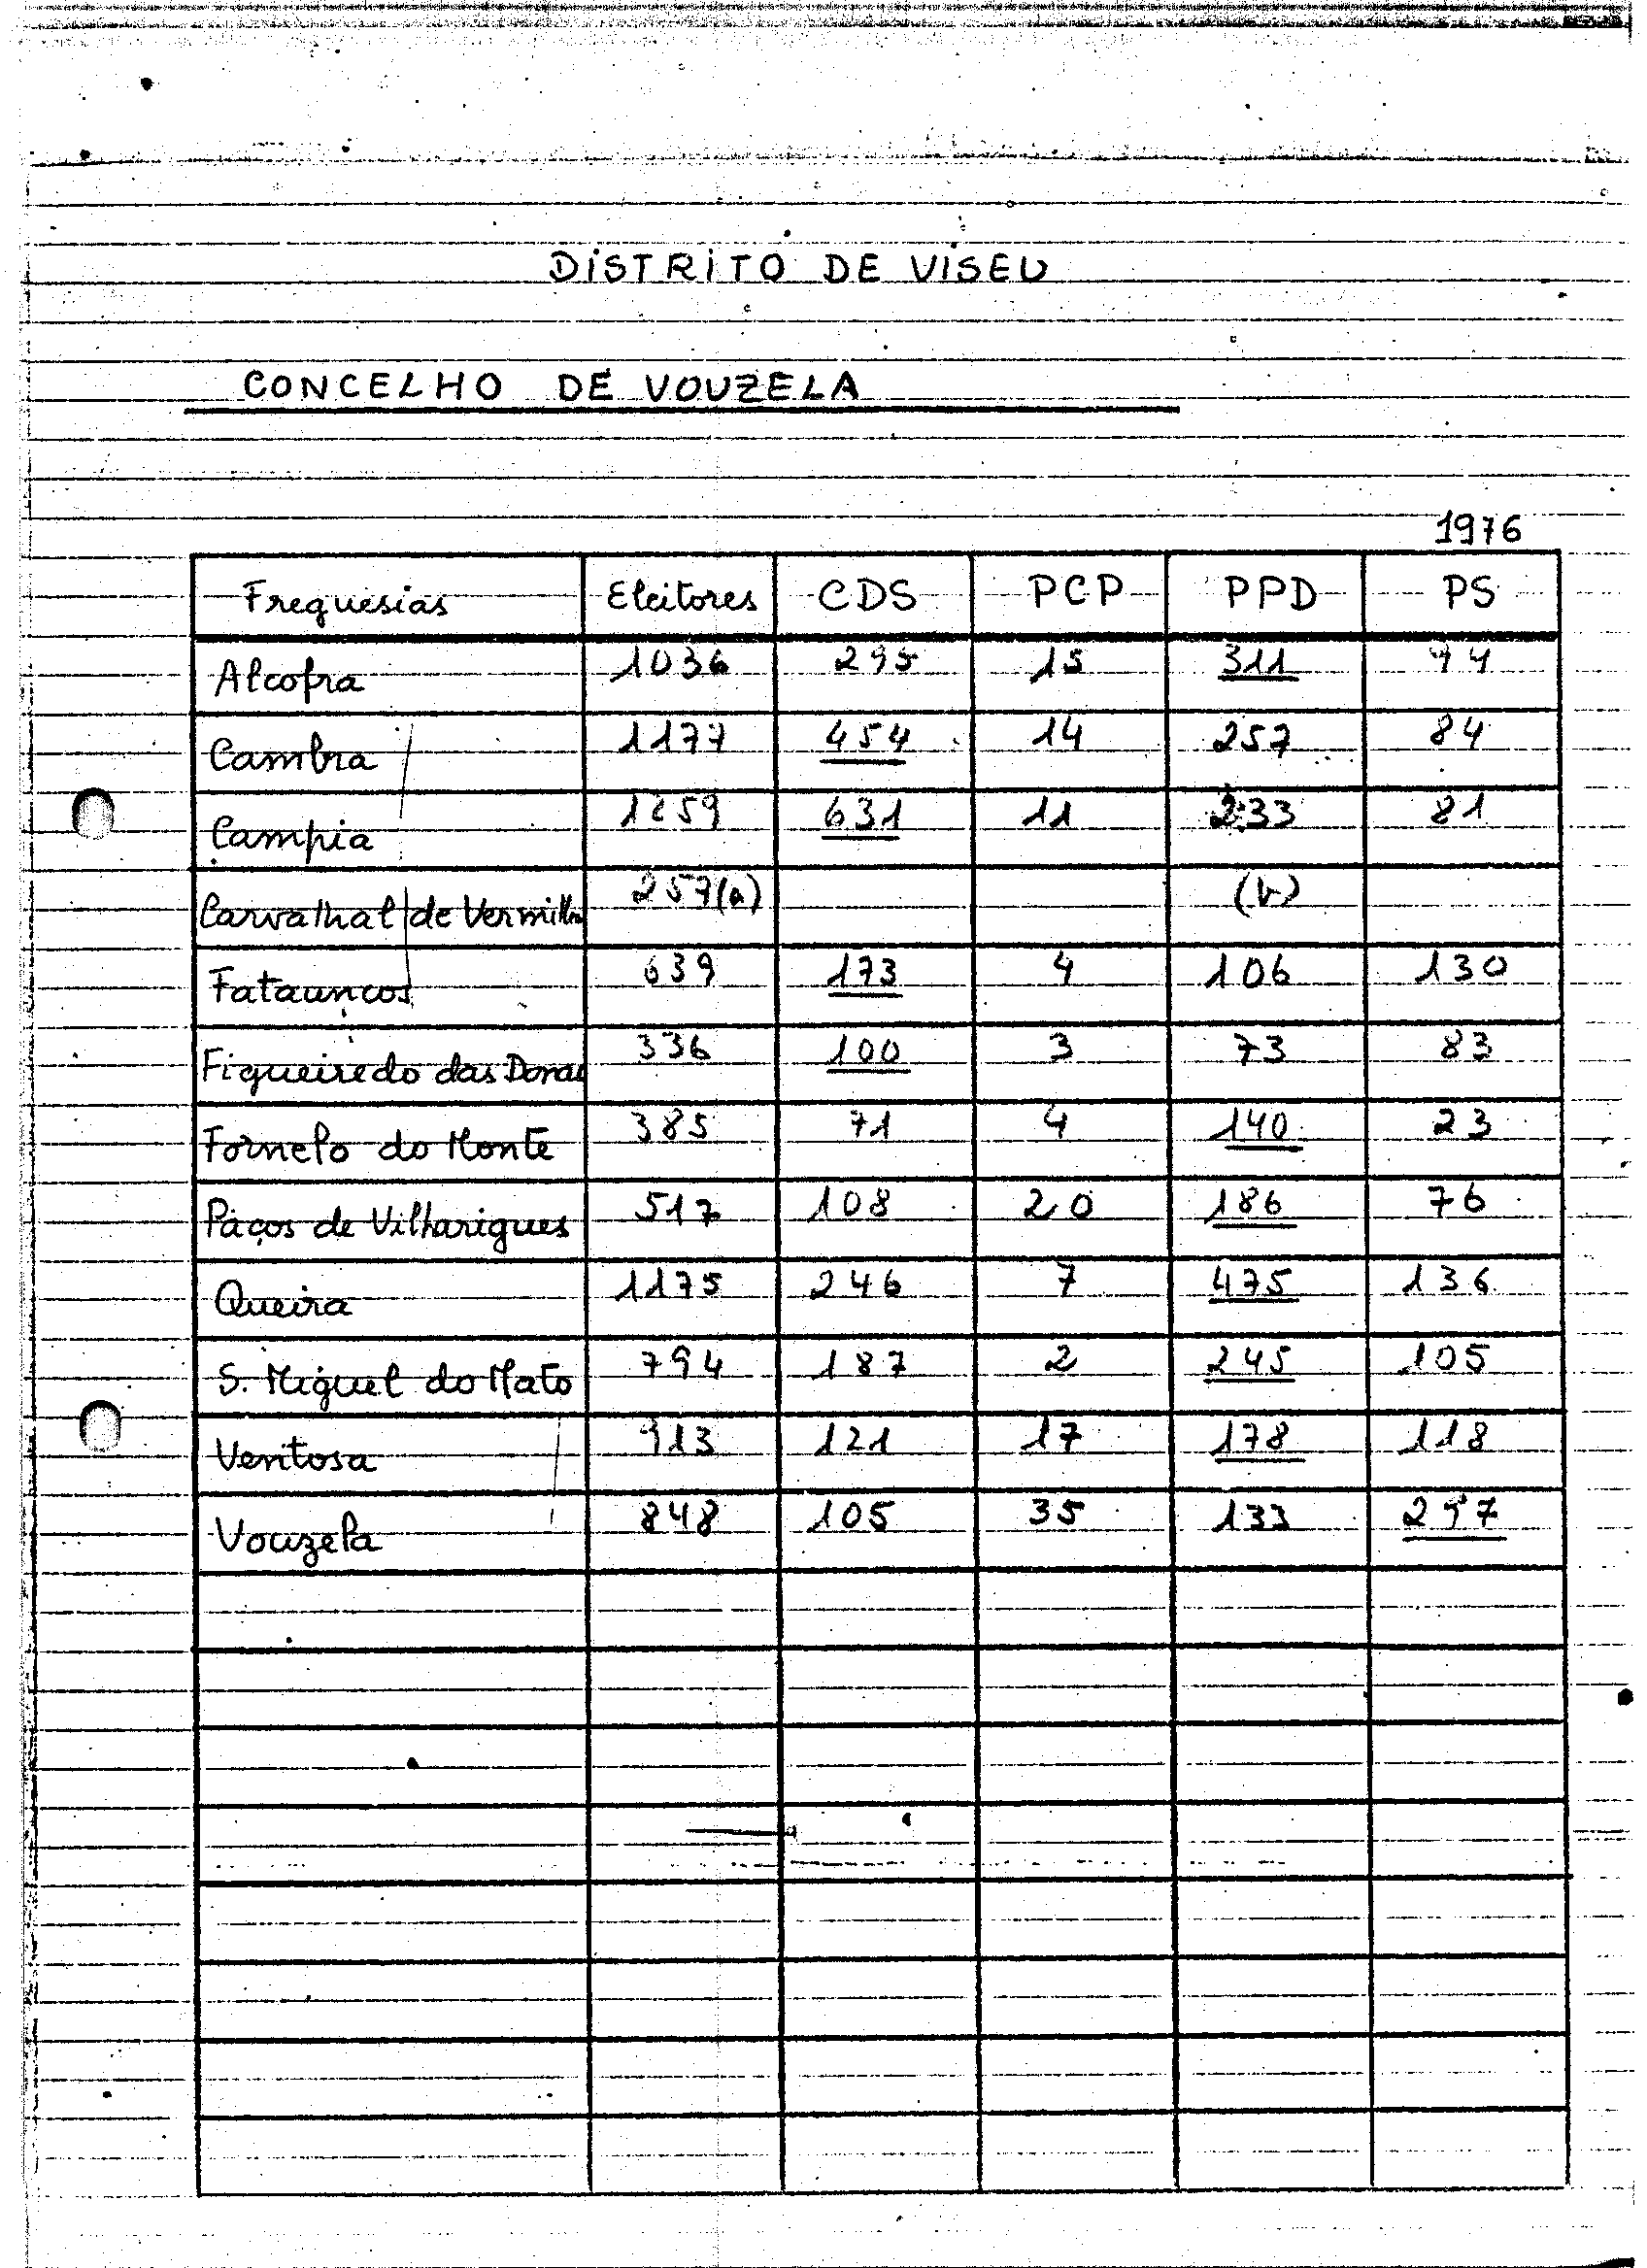 DISTRITO DE VISEU
CONCELHO DE VOUZELA
1976
Freguesias Eleitores CDS PCP PPD PS
Alcofra 1036 295 15 311 94
Cambra 1177 454 14 257 84
Campia 1259 631 11 233 81
Carvalhal de Vermilhas 257(a) (b)
Fataunços 639 173 4 106 130
Figueiredo das Donas 336 100 3 73 83
Fornelo do Monte 385 71 4 140 23
Paços de Vilharigues 517 108 20 186 76
Queirã 1175 246 7 475 136
S. Miguel do Mato 794 187 2 245 105
Ventosa 913 121 17 178 118
Vouzela 848 105 35 133 297